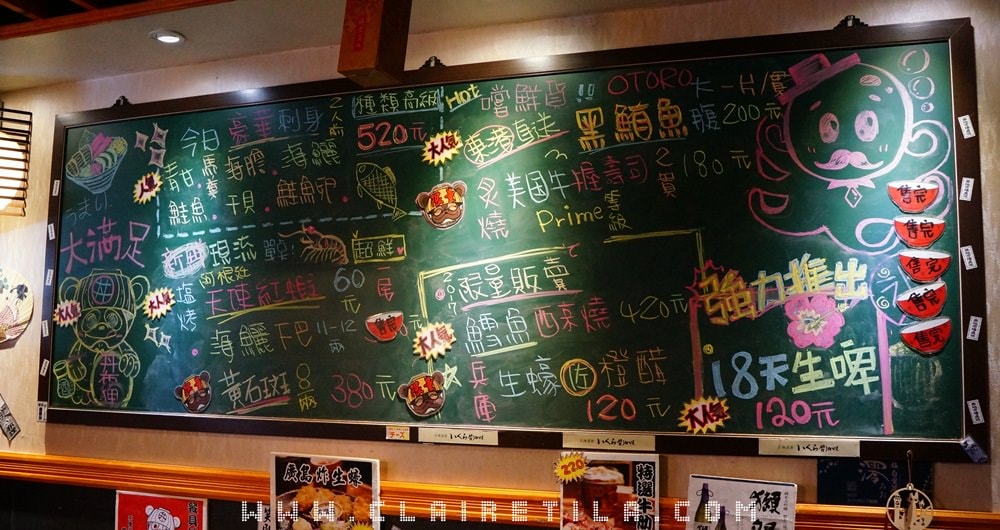 今日豪華刺身 2人份
種類高級!!
520元
青甘.馬糞海膽.海鱺
鮭魚.干貝.鮭魚卵.
うまい
大滿足
大人氣
大人氣
大人氣
丼
現流
阿根廷
超鮮
塩烤
天使紅蝦
60元
一尾
售完
海鱺下巴 11-12兩
黃石斑 8兩 380元
Hot
嚐鮮貨!!
東港直送
OTORO
黑鮪魚
大一片/貫
200元
大人氣
炙燒
美國牛握壽司 2貫 180元
Prime等級
2017
限量販賣
鱈魚西京燒 420元
大人氣
兵庫
生蠔佐橙醋
120元
強力推出
18天生啤
120元
大人氣
售完
售完
售完
售完
售完
チーズ
廣島炸生蠔
220
特選牛
獺
WWW.CLAIRETILA.COM